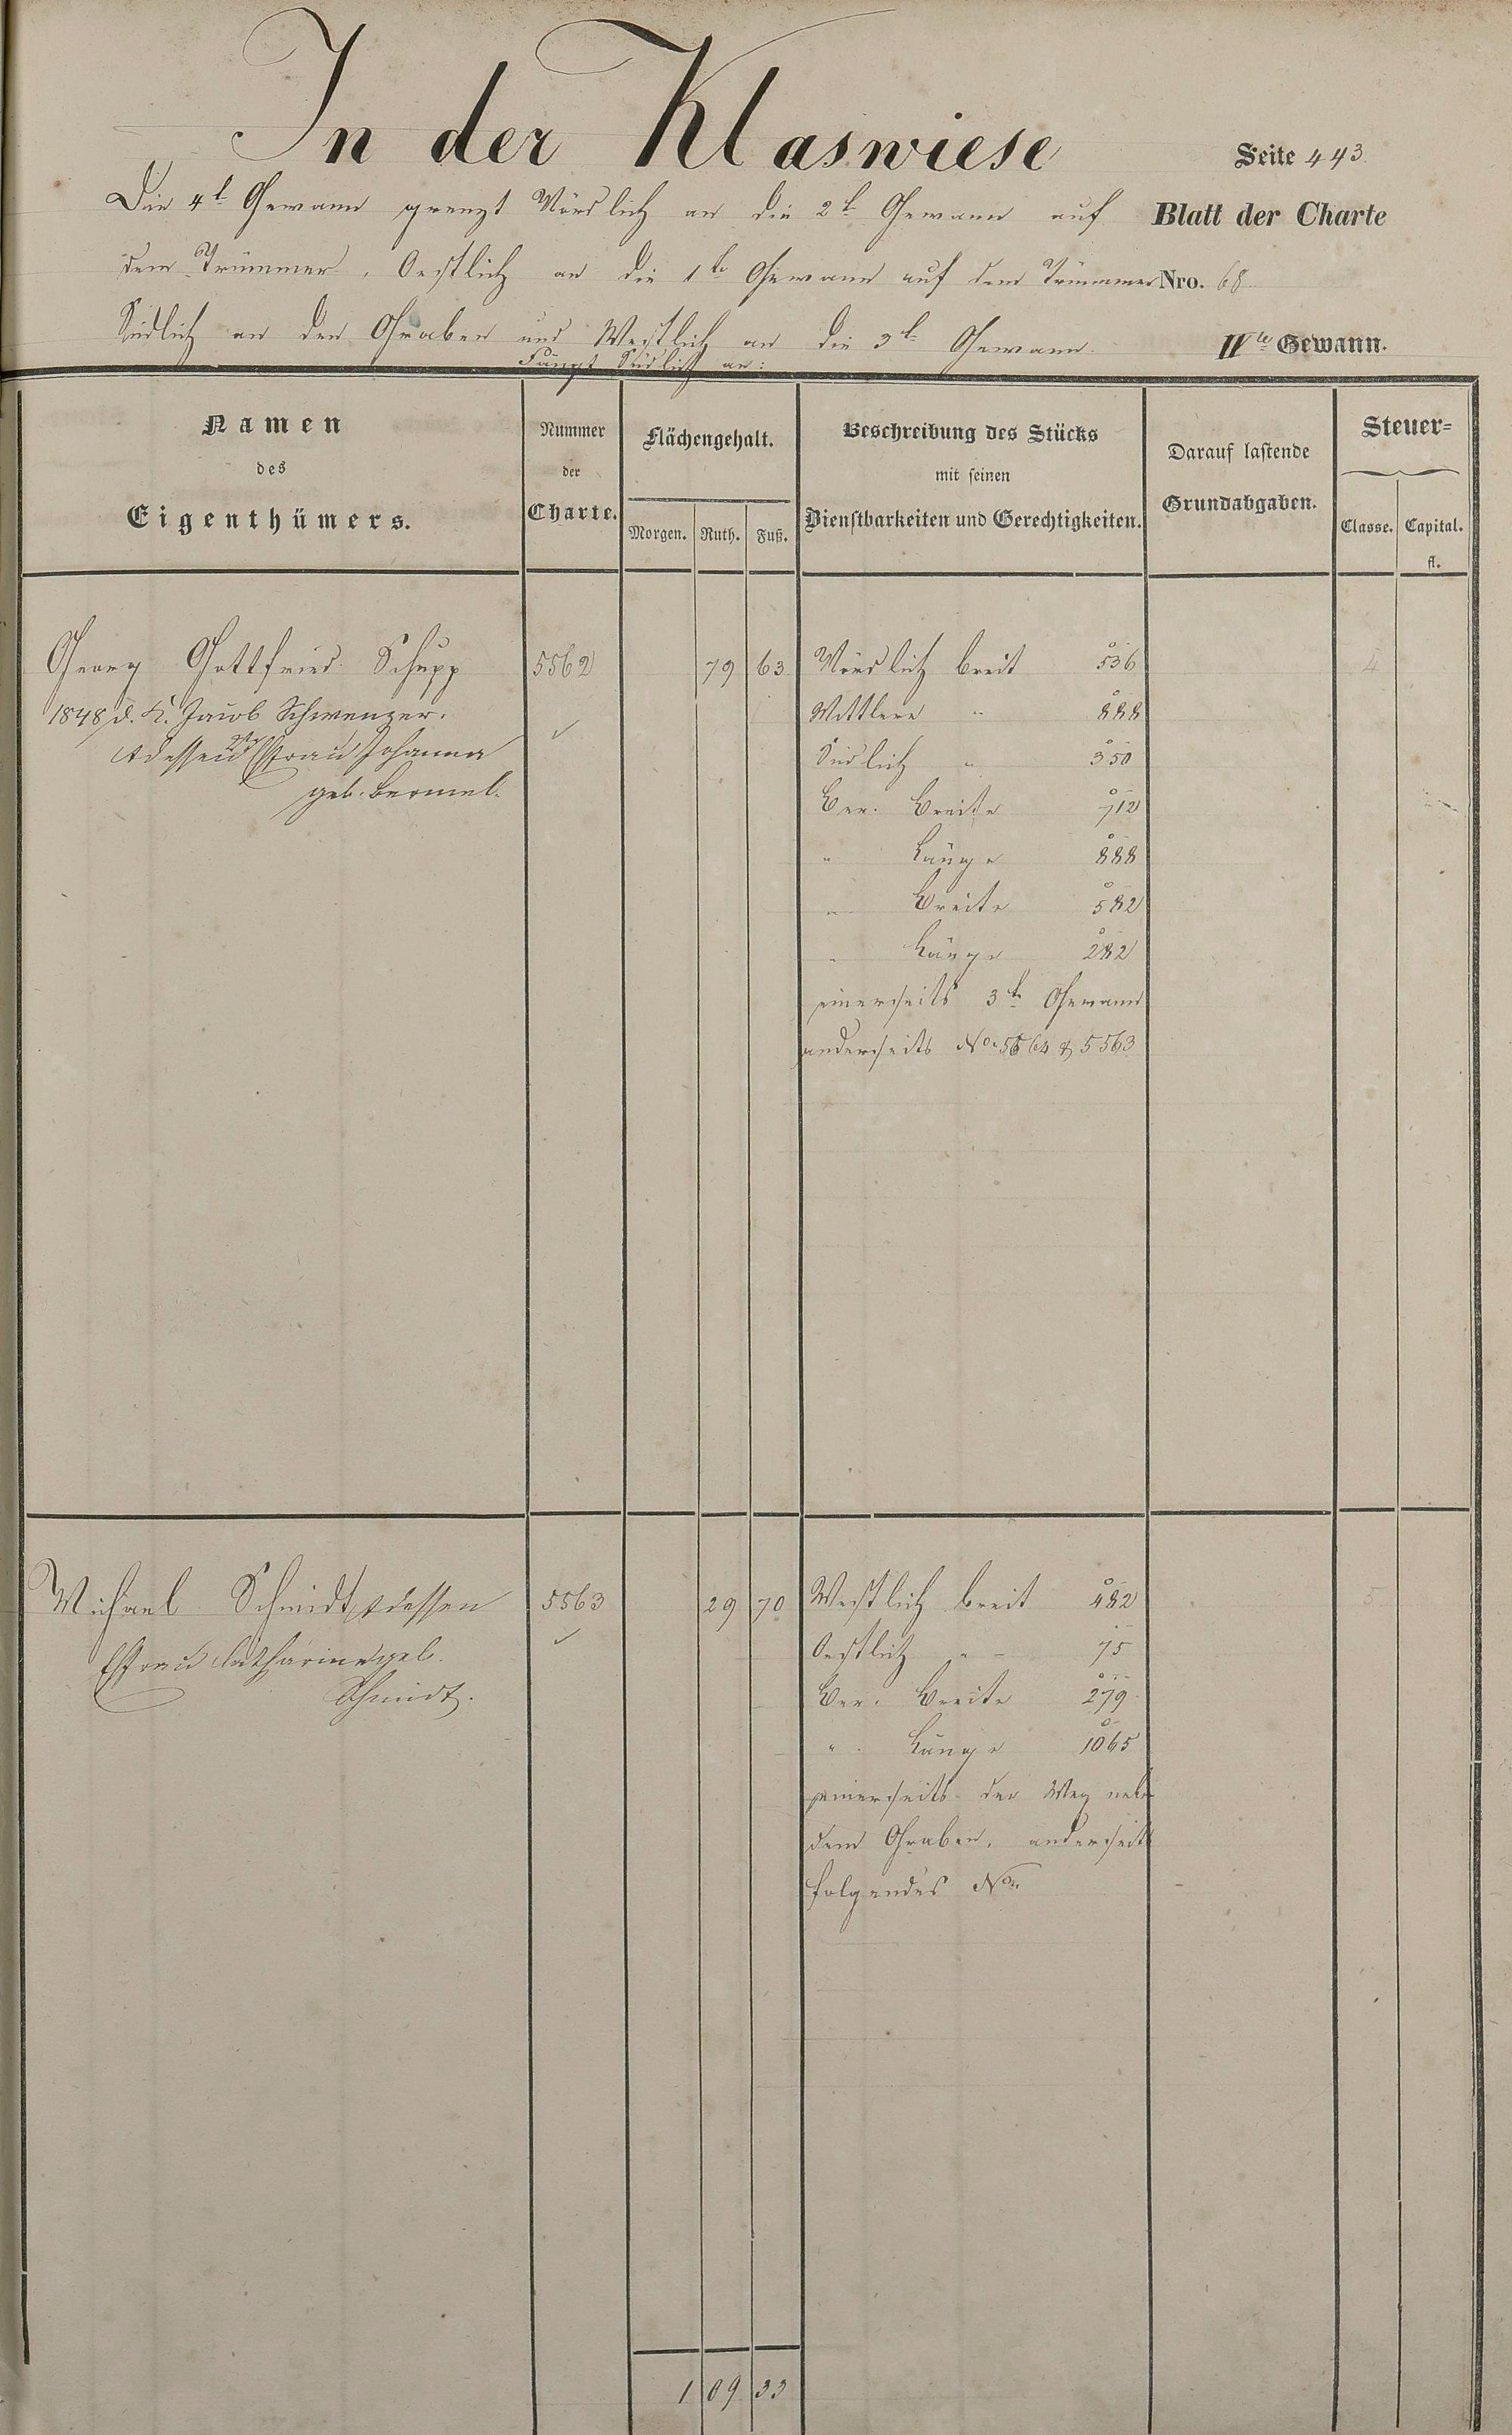 In der Klaswiese
Seite 443.
Die 4t Gewann grenzt Nördlich an die 2t Gewann auf
Blatt der Charte
dem Trümmer, Oestlich an die 1te Gewann auf dem Trümmer
Nro. 68
Südlich an den Graben und Westlich an die 3t Gewann.
IVte Gewann.
Fängt Südlich an:
Namen
des
Eigenthümers.
Nummer
der
Charte.
Flächengehalt.
Morgen. Ruth. Fuß.
Beschreibung des Stücks
mit seinen
Dienstbarkeiten und Gerechtigkeiten.
Darauf lastende
Grundabgaben.
Steuer=
Classe. Capital.
fl.
Georg Gottfried Schupp 5562 79 63 Nördlich breit 536 4
1848 d. K. Jacob Schwenzer. Mittlere " 888
& dessen Efrau Johanna Südlich " 350
geb. Bermel. Ber. Breite 712
" Länge 888
" Breite 582
" Länge 282
einerseits 3te Gewann
anderseits No. 5564 & 5563
Michael Schmidt & dessen 5563 29 70 Westlich breit 482 5
Efrau Catharine geb. Oestlich " 75
Schmidt. Ber. Breite 279
" Länge 1065
einerseits der Weg neb
dem Graben, anderseits
folgendes No.
1 09 33